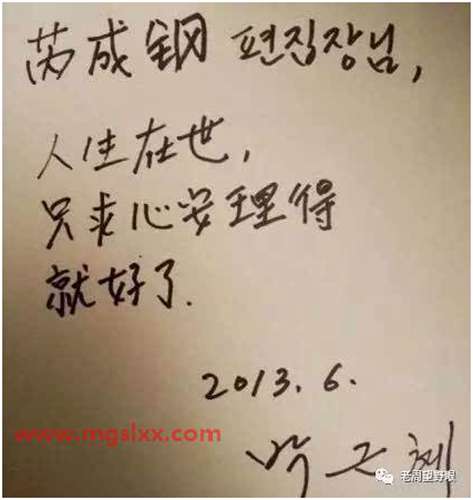 芮成钢 편집장님,
人生在世,
只求心安理得
就好了.
2013.6.
www.mgslxx.com
박근혜
老周望野眼